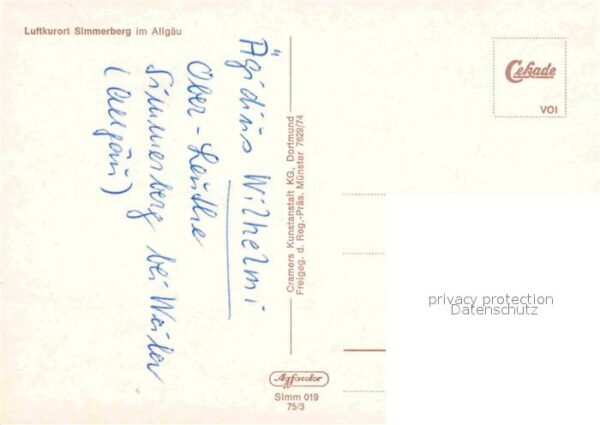 Luftkurort Simmerberg im Allgäu
Ägidius Wilhelmi
Ober-Leuthe
Simmerberg bei Weiler
(Allgäu)
Cramers Kunstanstalt KG, Dortmund
Freigeg. d. Reg.-Präs. Münster 7629/74
Cekade
VOI
privacy protection
Datenschutz
Agfacolor
Simm 019
75/3